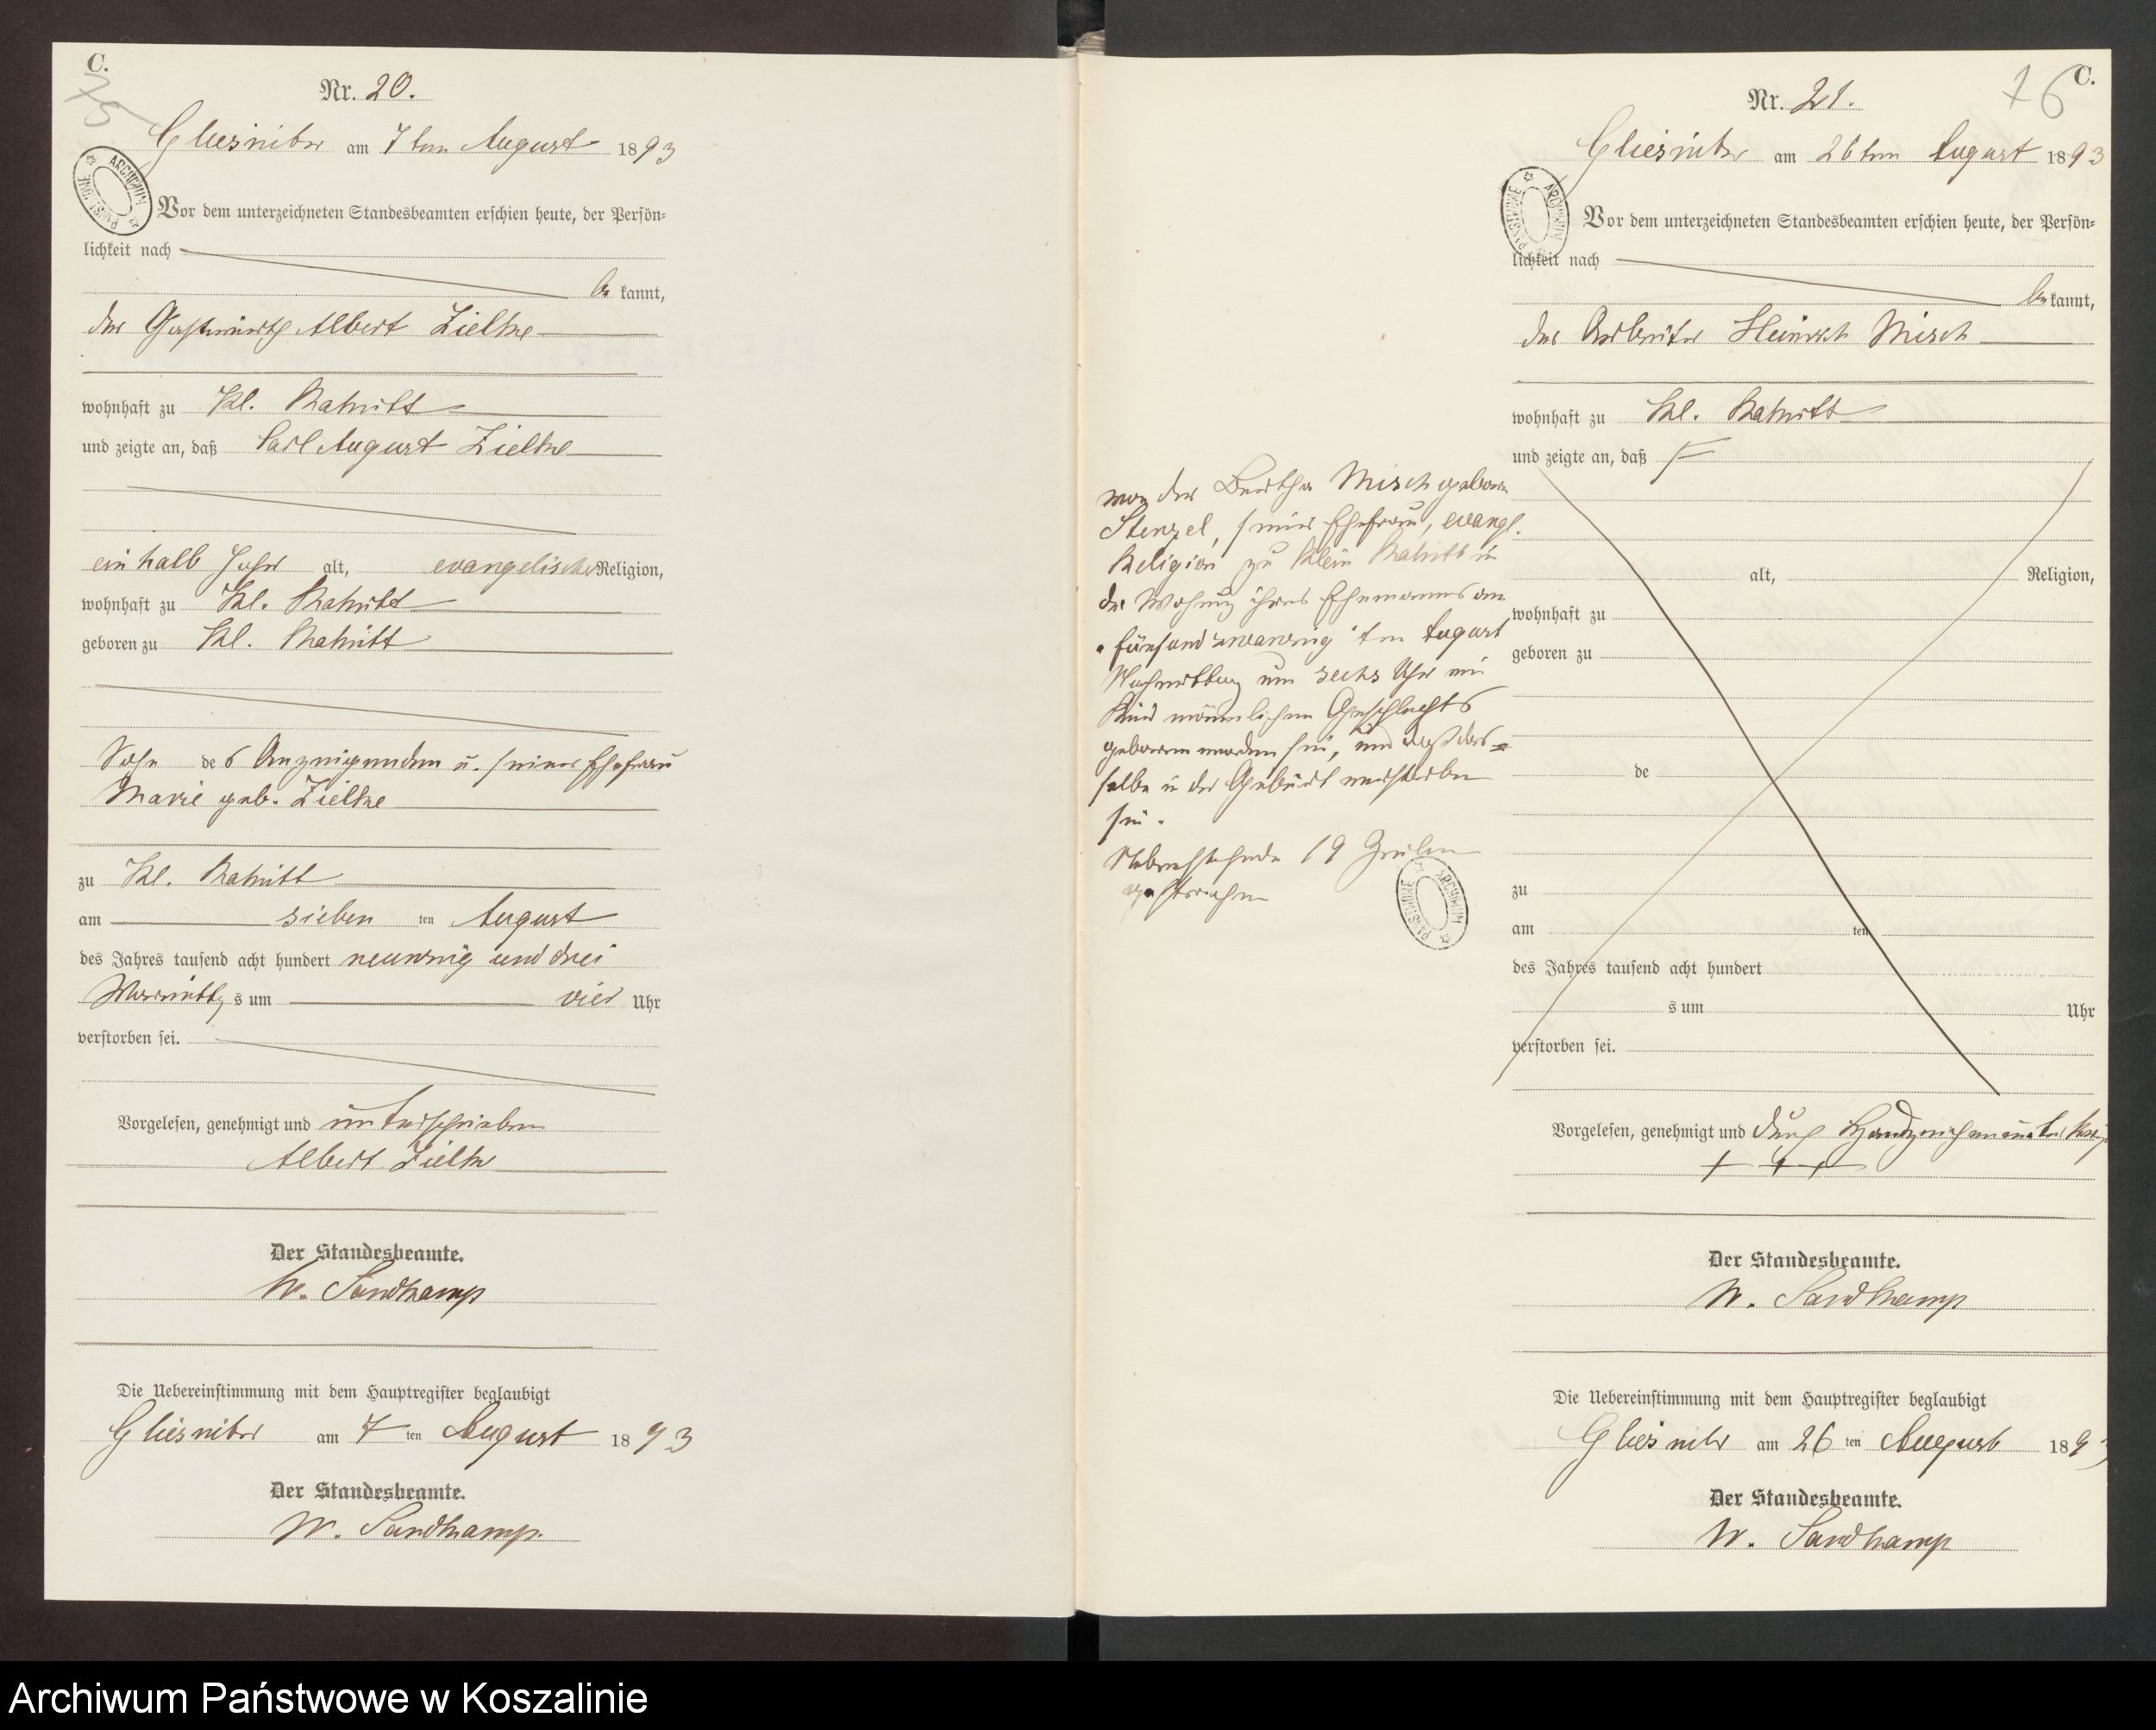 C.
75
Nr. 20.
Gliesnitz am 7ten August 1893
ARCHIWUM PAŃSTWOWE
Vor dem unterzeichneten Standesbeamten erschien heute, der Persön-
lichkeit nach
be kannt,
der Gastwirth Albert Zielke
wohnhaft zu Kl.
und zeigte an, daß Carl August Zielke
ein halb Jahr alt, evangelischer Religion,
wohnhaft zu Kl.
geboren zu Kl.
Sohn des Anzeigenden u. seiner Ehefrau
Marie geb. Zielke
zu Kl.
am sieben ten August
des Jahres tausend acht hundert neunzig und drei
Vormittags um vier Uhr
verstorben sei.
Vorgelesen, genehmigt und unterschrieben
Albert Zielke
Der Standesbeamte.
W. Sandkamp
Die Uebereinstimmung mit dem Hauptregister beglaubigt
Gliesnitz am 7 ten August 1893
Der Standesbeamte.
W. Sandkamp.
C.
76
Nr. 21.
Gliesnitz am 26ten August 1893
ARCHIWUM PAŃSTWOWE
Vor dem unterzeichneten Standesbeamten erschien heute, der Persön-
lichkeit nach
be kannt,
der Arbeiter Heinrich Misch
wohnhaft zu Kl.
und zeigte an, daß
von der Bertha Misch geborne
Stenzel, seiner Ehefrau, evangl.
Religion zu Klein in
der Wohnung ihres Ehemannes am
fünfundzwanzig ten August
Nachmittag um sechs Uhr ein
Kind männlichen Geschlechts
geboren worden sei, und daß das-
selbe in der Geburt verstorben
sei.
Nebenstehende 19 Zeilen
gestrichen
ARCHIWUM PAŃSTWOWE
alt, Religion,
wohnhaft zu
geboren zu
de
zu
am ten
des Jahres tausend acht hundert
s um Uhr
verstorben sei.
Vorgelesen, genehmigt und durch Handzeichen
+ + +
Der Standesbeamte.
W. Sandkamp
Die Uebereinstimmung mit dem Hauptregister beglaubigt
Gliesnitz am 26 ten August 1893
Der Standesbeamte.
W. Sandkamp
Archiwum Państwowe w Koszalinie